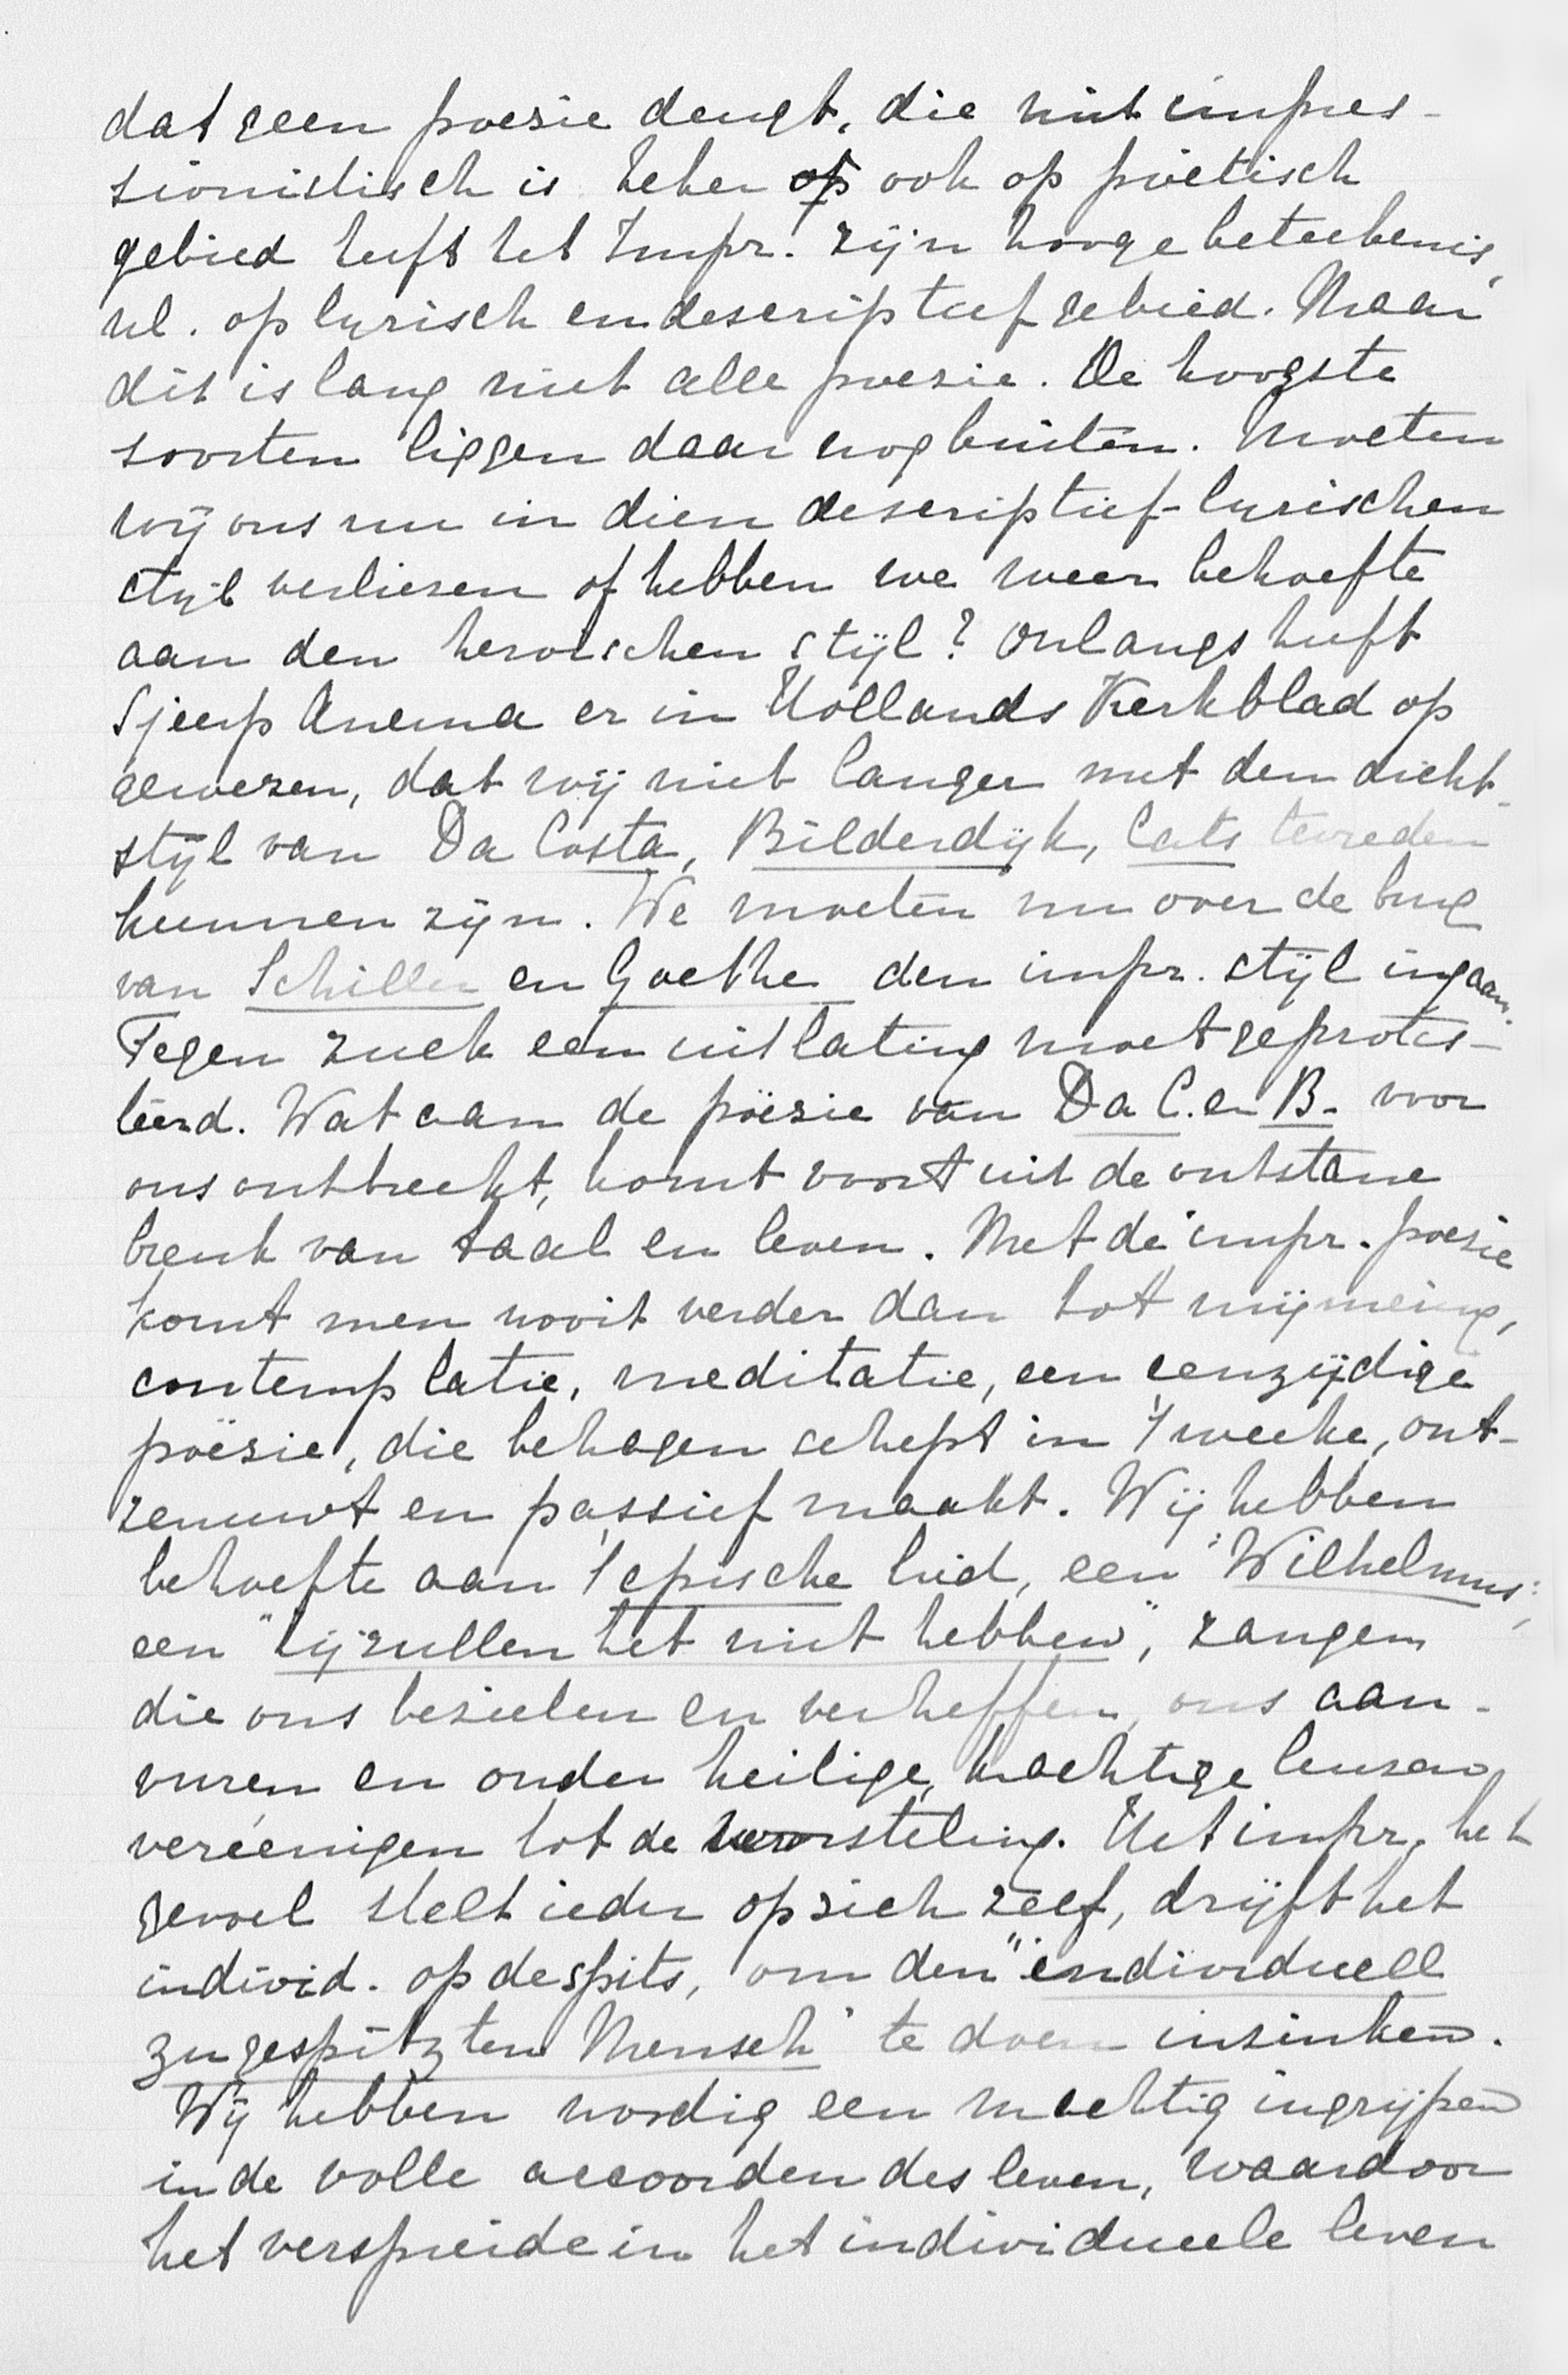 dat geen poesie deugt, die niet impres-
sionistisch is. Zeker ook op poëtisch
gebied heeft het Impr. zijn hooge beteekenis,
nl. op lyrisch en descriptief gebied. Maar
dit is lang niet alle poesie. De hoogste
soorten liggen daar nog buiten. Moeten
wij ons nu in dien descriptief-lyrischen
stijl verliezen of hebben we weer behoefte
aan den heroischen stijl? Onlangs heeft
Sjeerp Anema er in Hollands Kerkblad op
gewezen, dat wij niet langer met den dicht-
stijl van Da Costa, Bilderdijk, Cats tevreden
kunnen zijn. We moeten nu over de brug
van Schiller en Goethe den impr. stijl ingaan.
Tegen zulk een uitlating moet geprotes-
teerd. Wat aan de poëzie van Da C. en B. voor
ons ontbreekt, komt voort uit de ontstane
breuk van taal en leven. Met de impr. poesie
komt men nooit verder dan tot mijmering,
contemplatie, meditatie, een eenzijdige
poësie, die behagen schept in 't weeke, ont-
zenuwt en passief maakt. Wij hebben
behoefte aan 't epische lied, een "Wilhelmus",
een "zij zullen het niet hebben", zangen
die ons bezielen en verheffen, ons aan-
vuren en onder heilige, krachtige leuzen
vereenigen tot de worsteling. Het impr., het
gevoel stelt ieder op zich zelf, drijft het
individ. op de spits, om den "individuell
zugespitzten Mensch" te doen inzinken.
Wij hebben noodig een machtig ingrijpen
in de volle accoorden des leven, waardoor
het verspreide in het individueele leven